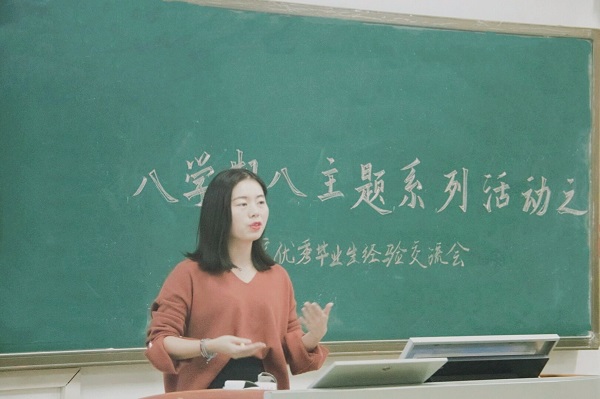 八学期八主题系列活动之
优秀毕业生经验交流会